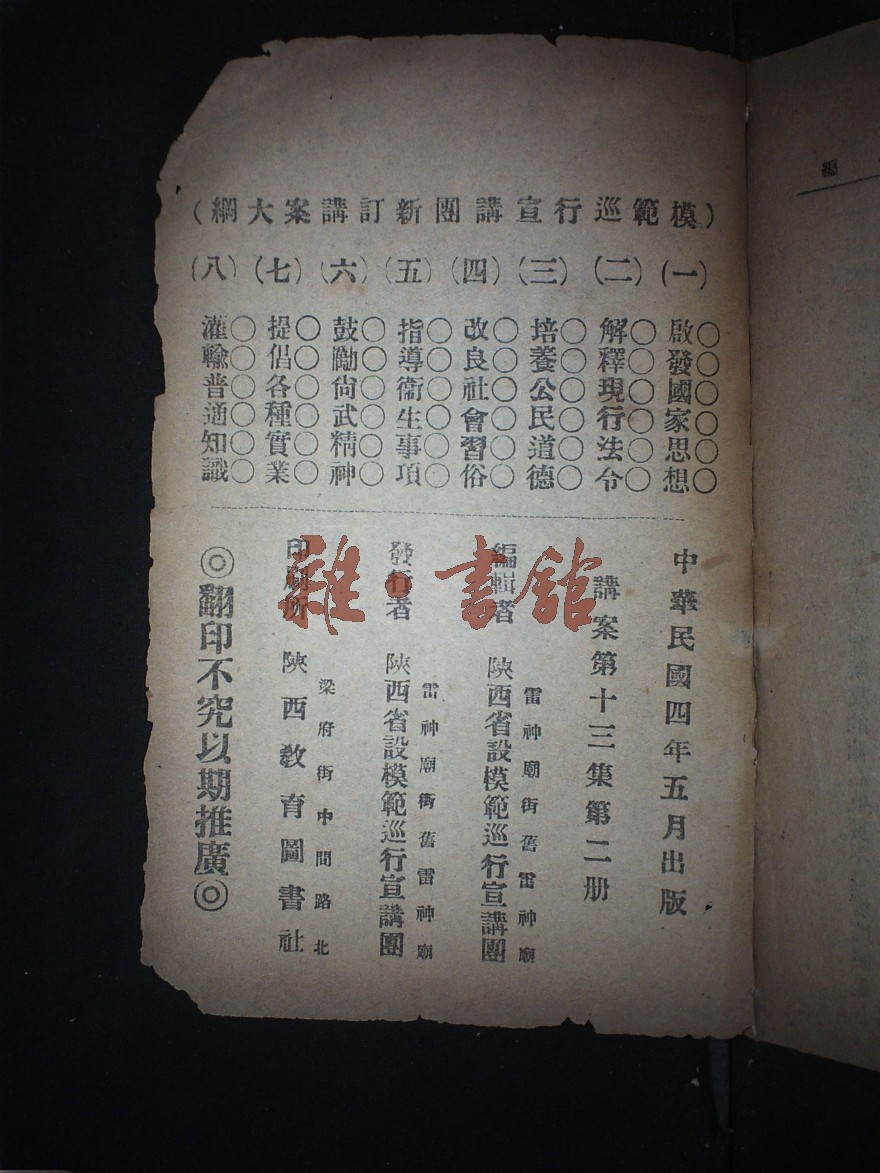 （模範巡行宣講團新訂講案大綱）
（一）啟發國家思想
（二）解釋現行法令
（三）培養公民道德
（四）改良社會習俗
（五）指導衞生事項
（六）鼓勵尙武精神
（七）提倡各種實業
（八）灌輸普通知識
中華民國四年五月出版
講案第十三集第二册
編輯者 陝西省設模範巡行宣講團
雷神廟街舊雷神廟
發行者 陝西省設模範巡行宣講團
雷神廟街舊雷神廟
印刷所 陝西教育圖書社
梁府街中間路北
◎翻印不究以期推廣◎
雜·書館
編